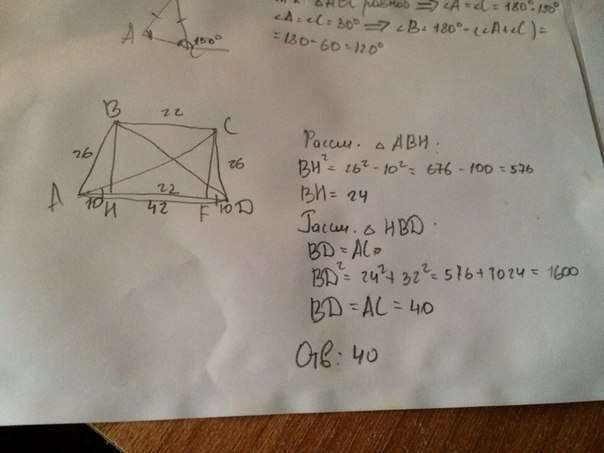 △ABC равноб ⇒ ∠A=∠C= 180°-150°
∠A=∠C=30° ⇒ ∠B= 180°-(∠A+∠C)=
=180-60=120°
A
C
150°
B
22
C
26
26
A
22
10
H
42
F
10
D
Рассм. △ ABH:
BH²= 26²-10²= 676-100=576
BH= 24
Рассм. △ HBD:
BD=AC
BD²= 24²+32²=576+1024=1600
BD=AC=40
Отв: 40